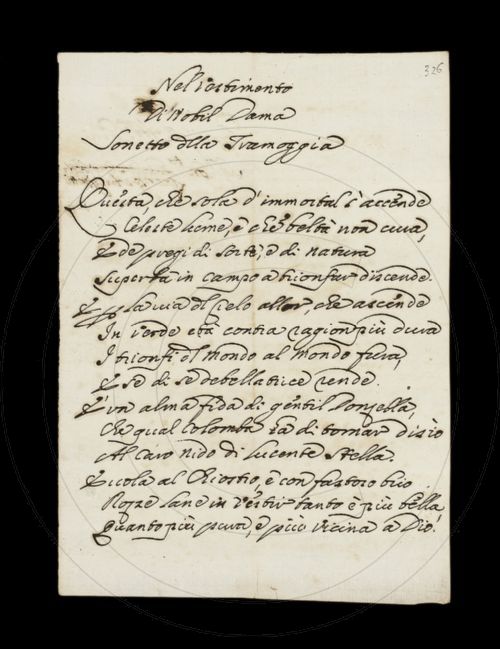 326
Nel Vestimento
Di Nobil Dama
Sonetto della Tramoggia
Questa, che sola d'immortal s'accende
Celeste lume, e che beltà non cura,
E de pregi di sorte, e di natura
Superba in campo a trionfar discende.
E la via del cielo allor, che ascende
In verde età contra ragion più dura
I trionfi del Mondo al Mondo fura,
E se di se debellatrice rende.
E un alma fida di gentil Donzella,
Che qual Colomba va di tornar disio
Al caro nido di lucente Stella.
E vola al Chiostro, e con fastoso
Rozze lane in vestir tanto è più bella
Quanto più pura, e più vicina a Dio.